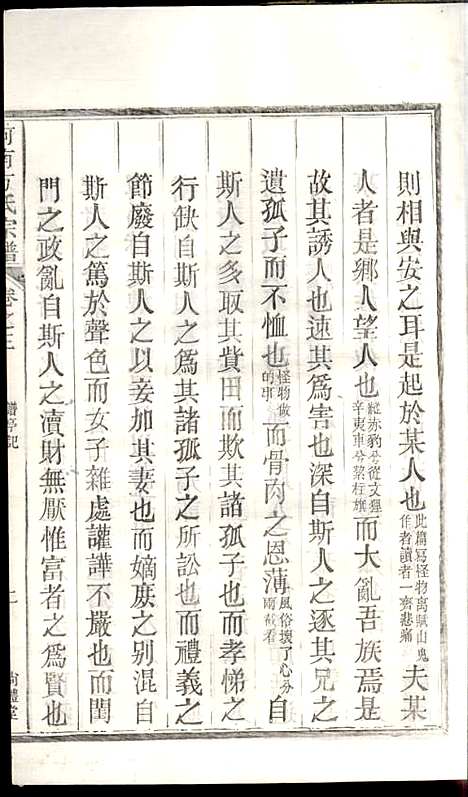 則相與安之耳是起於某人也此篇寫怪物離賦山鬼作者讀者一齊悲痛夫某
人者是鄉人望人也從赤豹兮從文貍辛夷車兮結桂旗而大亂吾族焉是
故其誘人也速其為害也深自斯人之逐其兄之
遺孤子而不恤也怪物做的事而骨肉之恩薄風俗壞了心分兩截看自
斯人之多取其貲田而欺其諸孤子也而孝悌之
行缺自斯人之為其諸孤子之所訟也而禮義之
節廢自斯人之以妾加其妻也而嫡庻之别混自
斯人之篤於聲色而女子雜處讙譁不嚴也而閨
門之政亂自斯人之瀆財無厭惟富者之為賢也
河南方氏宗譜 卷之三 譜亭記